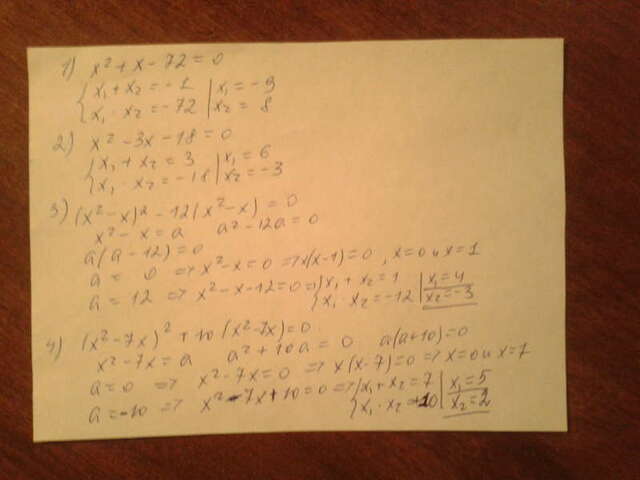 1) x² + x - 72 = 0
{ x₁ + x₂ = -1 | x₁ = -9
x₁ · x₂ = -72 | x₂ = 8
2) x² - 3x - 18 = 0
{ x₁ + x₂ = 3 | x₁ = 6
x₁ · x₂ = -18 | x₂ = -3
3) (x² - x)² - 12(x² - x) = 0
x² - x = a a² - 12a = 0
a(a - 12) = 0
a = 0 => x² - x = 0 => x(x-1) = 0, x = 0 и x = 1
a = 12 => x² - x - 12 = 0 => { x₁ + x₂ = 1 | x₁ = 4
x₁ · x₂ = -12 | x₂ = -3
4) (x² - 7x)² + 10(x² - 7x) = 0
x² - 7x = a a² + 10a = 0 a(a+10) = 0
a = 0 => x² - 7x = 0 => x(x-7) = 0 => x = 0 и x = 7
a = -10 => x² - 7x + 10 = 0 => { x₁ + x₂ = 7 | x₁ = 5
x₁ · x₂ = 10 | x₂ = 2